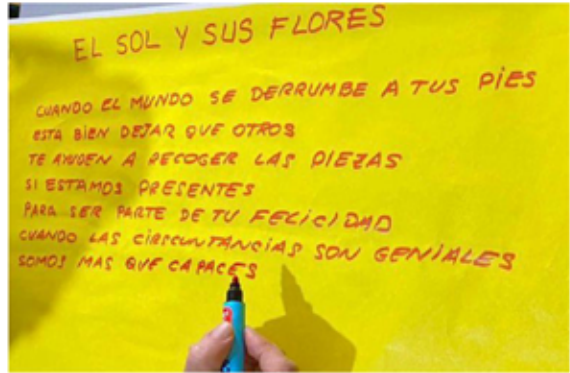 EL SOL Y SUS FLORES
CUANDO EL MUNDO SE DERRUMBE A TUS PIES
ESTA BIEN DEJAR QUE OTROS
TE AYUDEN A RECOGER LAS PIEZAS
SI ESTAMOS PRESENTES
PARA SER PARTE DE TU FELICIDAD
CUANDO LAS CIRCUNTANCIAS SON GENIALES
SOMOS MAS QUE CAPACES